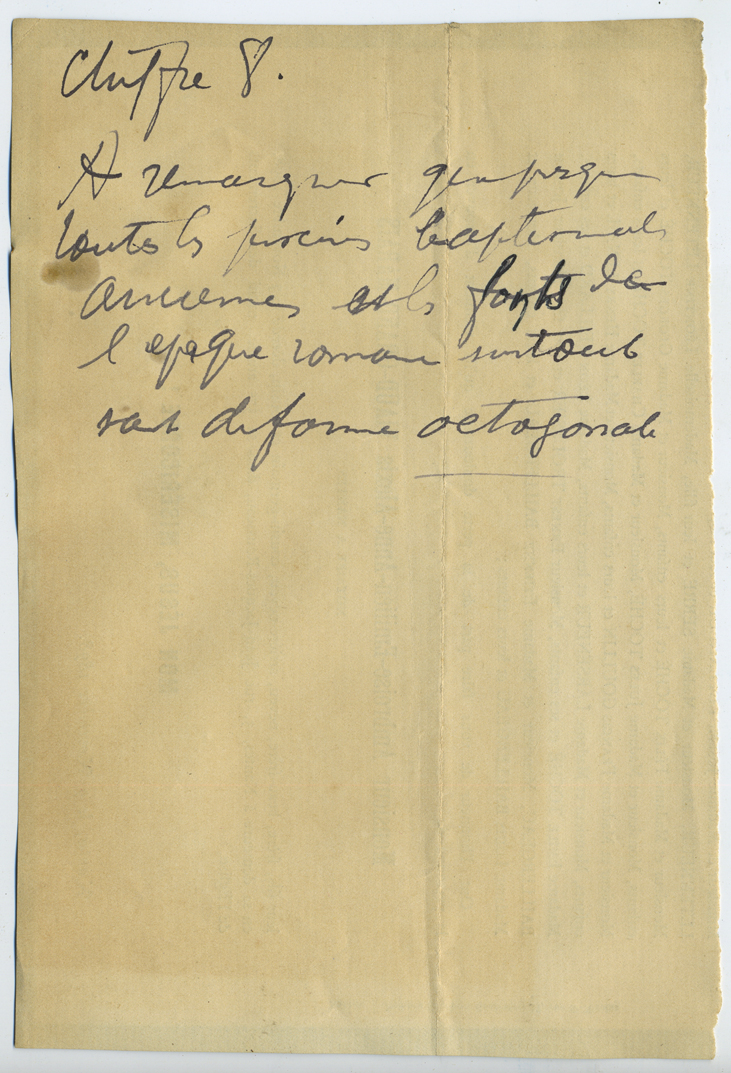 Chiffre 8.
A remarquer que presque
toutes les piscines baptismales
anciennes et les fonts de
l'epoque romane surtout
sont de forme octogonale